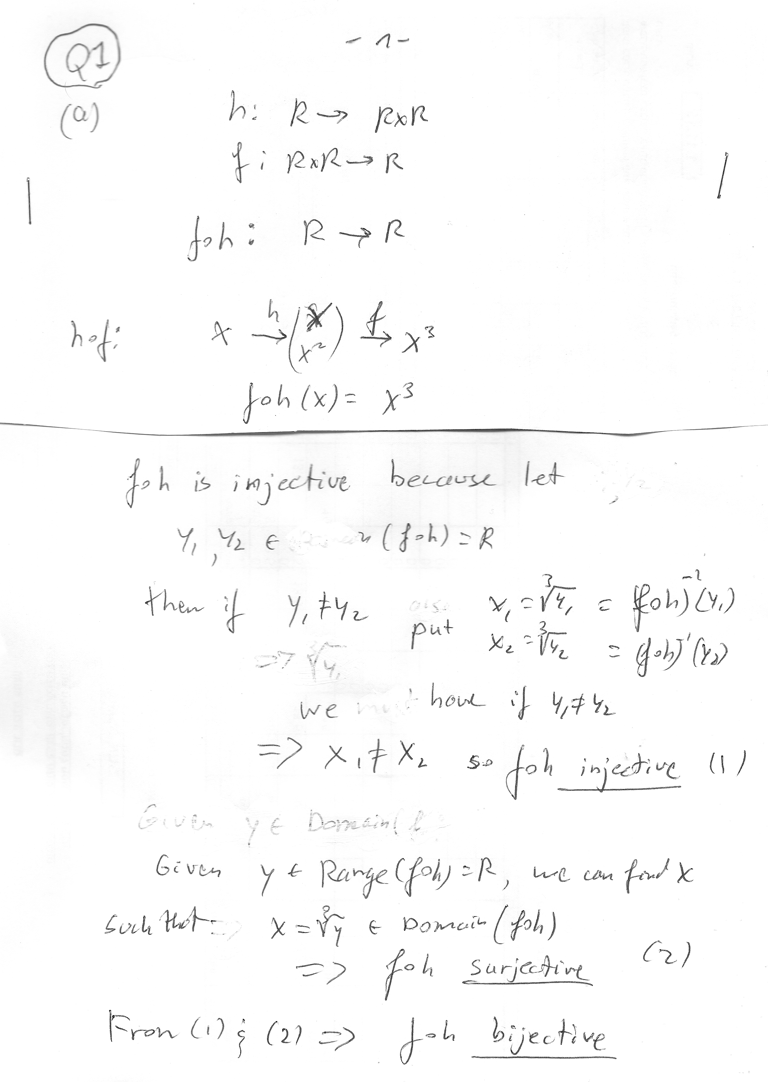 Q1
- 1 -
(a)
h: R → R×R
f: R×R → R
foh: R → R
hof: x →h (x x²) →f x³
foh(x) = x³
foh is injective because let
y₁, y₂ ∈ (foh) = R
then if y₁ ≠ y₂ put x₁ = ∛y₁ = (foh)⁻¹(y₁)
x₂ = ∛y₂ = (foh)⁻¹(y₂)
=> ∛y₁
we must have if y₁ ≠ y₂
=> x₁ ≠ x₂ so foh injective (1)
Given y ∈ Domain(f
Given y ∈ Range(foh) = R, we can find x
such that x = ∛y ∈ Domain(foh)
=> foh surjective (2)
From (1) & (2) => foh bijective